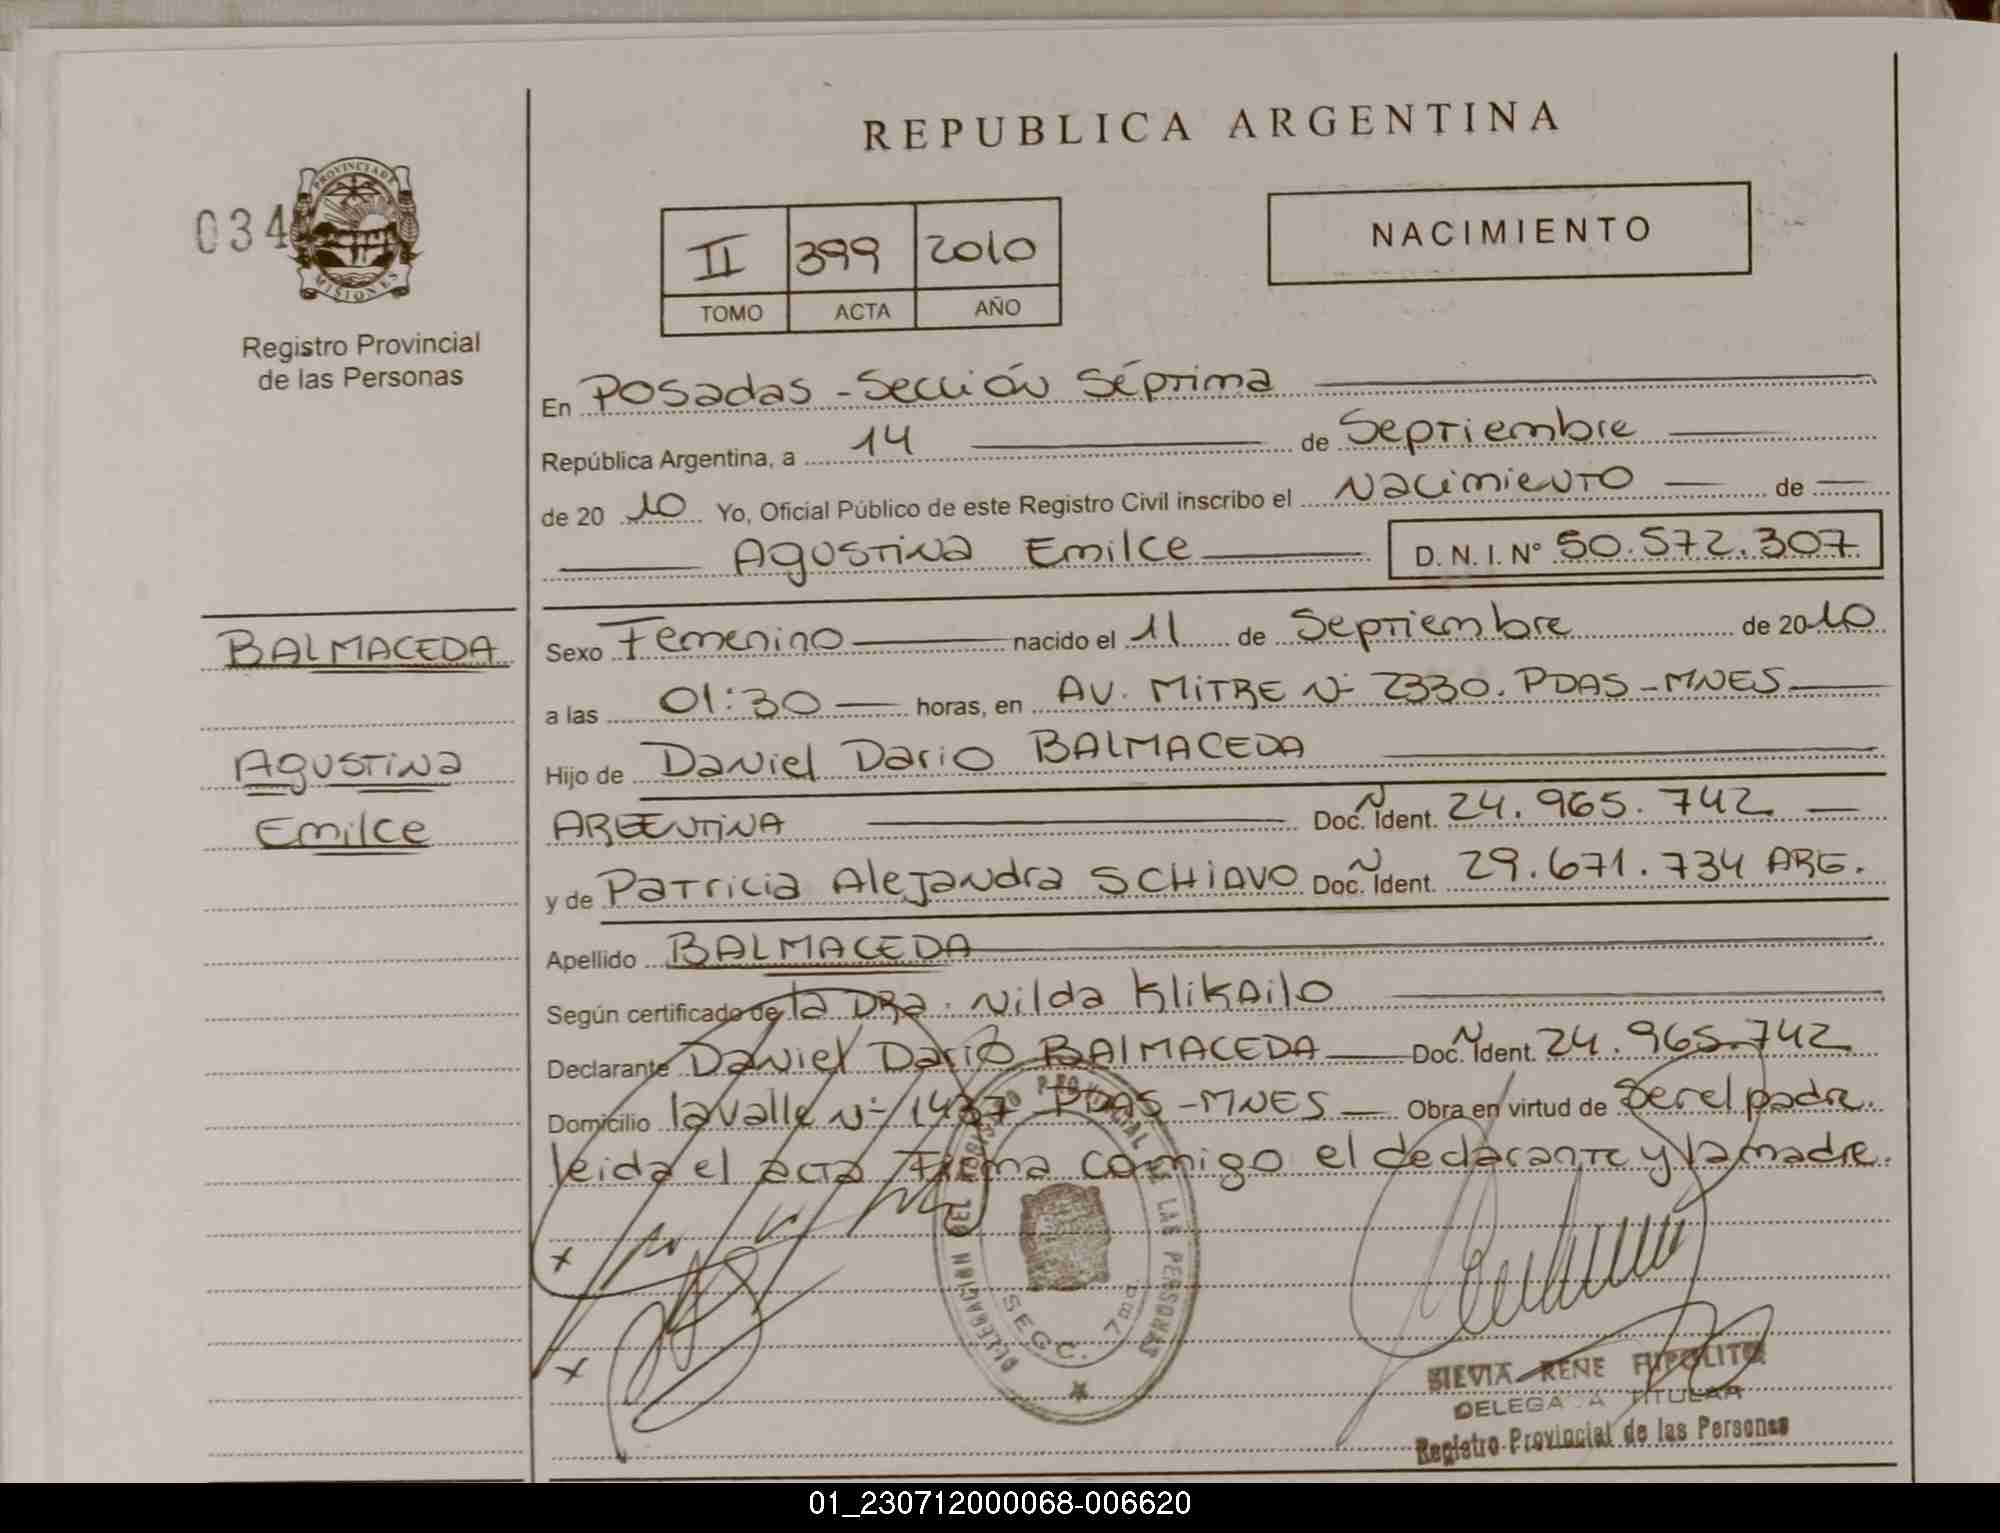 REPUBLICA ARGENTINA
034
PROVINCIA DE
MISIONES
Registro Provincial
de las Personas
II 399 2010
TOMO ACTA AÑO
NACIMIENTO
En Posadas - Sección Séptima
República Argentina, a 14 de Septiembre
de 2010 Yo, Oficial Público de este Registro Civil inscribo el Nacimiento de
Agustina Emilce D. N. I. N° 50.572.307
BALMACEDA
Agustina
Emilce
Sexo Femenino nacido el 11 de Septiembre de 2010
a las 01:30 horas, en AV. MITRE Nº 2330. PDAS - MNES
Hijo de Daniel Dario BALMACEDA
ARGENTINA Doc. Ñ Ident. 24.965.742
y de Patricia Alejandra SCHIAVO Doc. Ñ Ident. 29.671.734 ARG.
Apellido BALMACEDA
Según certificado de la DRa. Nilda Klikailo
Declarante Daniel Dario BALMACEDA Doc. Ñ Ident. 24.965.742
Domicilio lavalle Nº 1437 PDAS - MNES Obra en virtud de Ser el padre.
leida el acta Firma comigo el declarante y la madre.
DELEGACION DEL REGISTRO PROVINCIAL DE LAS PERSONAS
SECC. 7ma
SILVIA RENE HIPOLITO
DELEGADA TITULAR
Registro Provincial de las Personas
01_230712000068-006620